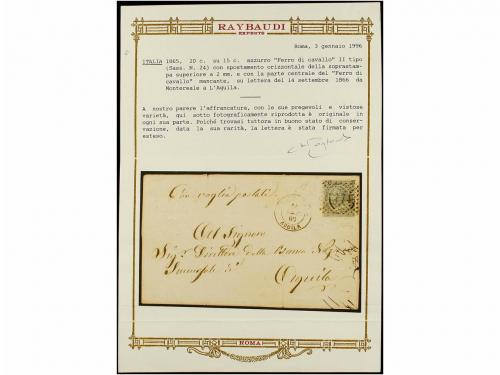 RAYBAUDI
EXPERTS
Roma, 3 gennaio 1996
ITALIA 1865, 20 c. su 15 c. azzurro "Ferro di cavallo" II tipo
(Sass. N. 24) con spostamento orizzontale della soprastam-
pa superiore a 2 mm. e con la parte centrale del "Ferro di
cavallo" mancante, su lettera del 14 settembre 1866 da
Montereale a L'Aquila.
A nostro parere l'affrancatura, con le sue pregevoli e vistose
varietà, qui sotto fotograficamente riprodotta è originale in
ogni sua parte. Poiché trovasi tuttora in buono stato di conser-
vazione, data la sua rarità, la lettera è stata firmata per
esteso.
Con vaglia postale
AQUILA
Al Signore
Sig. Direttore della Banca Naz
Aquila
ROMA